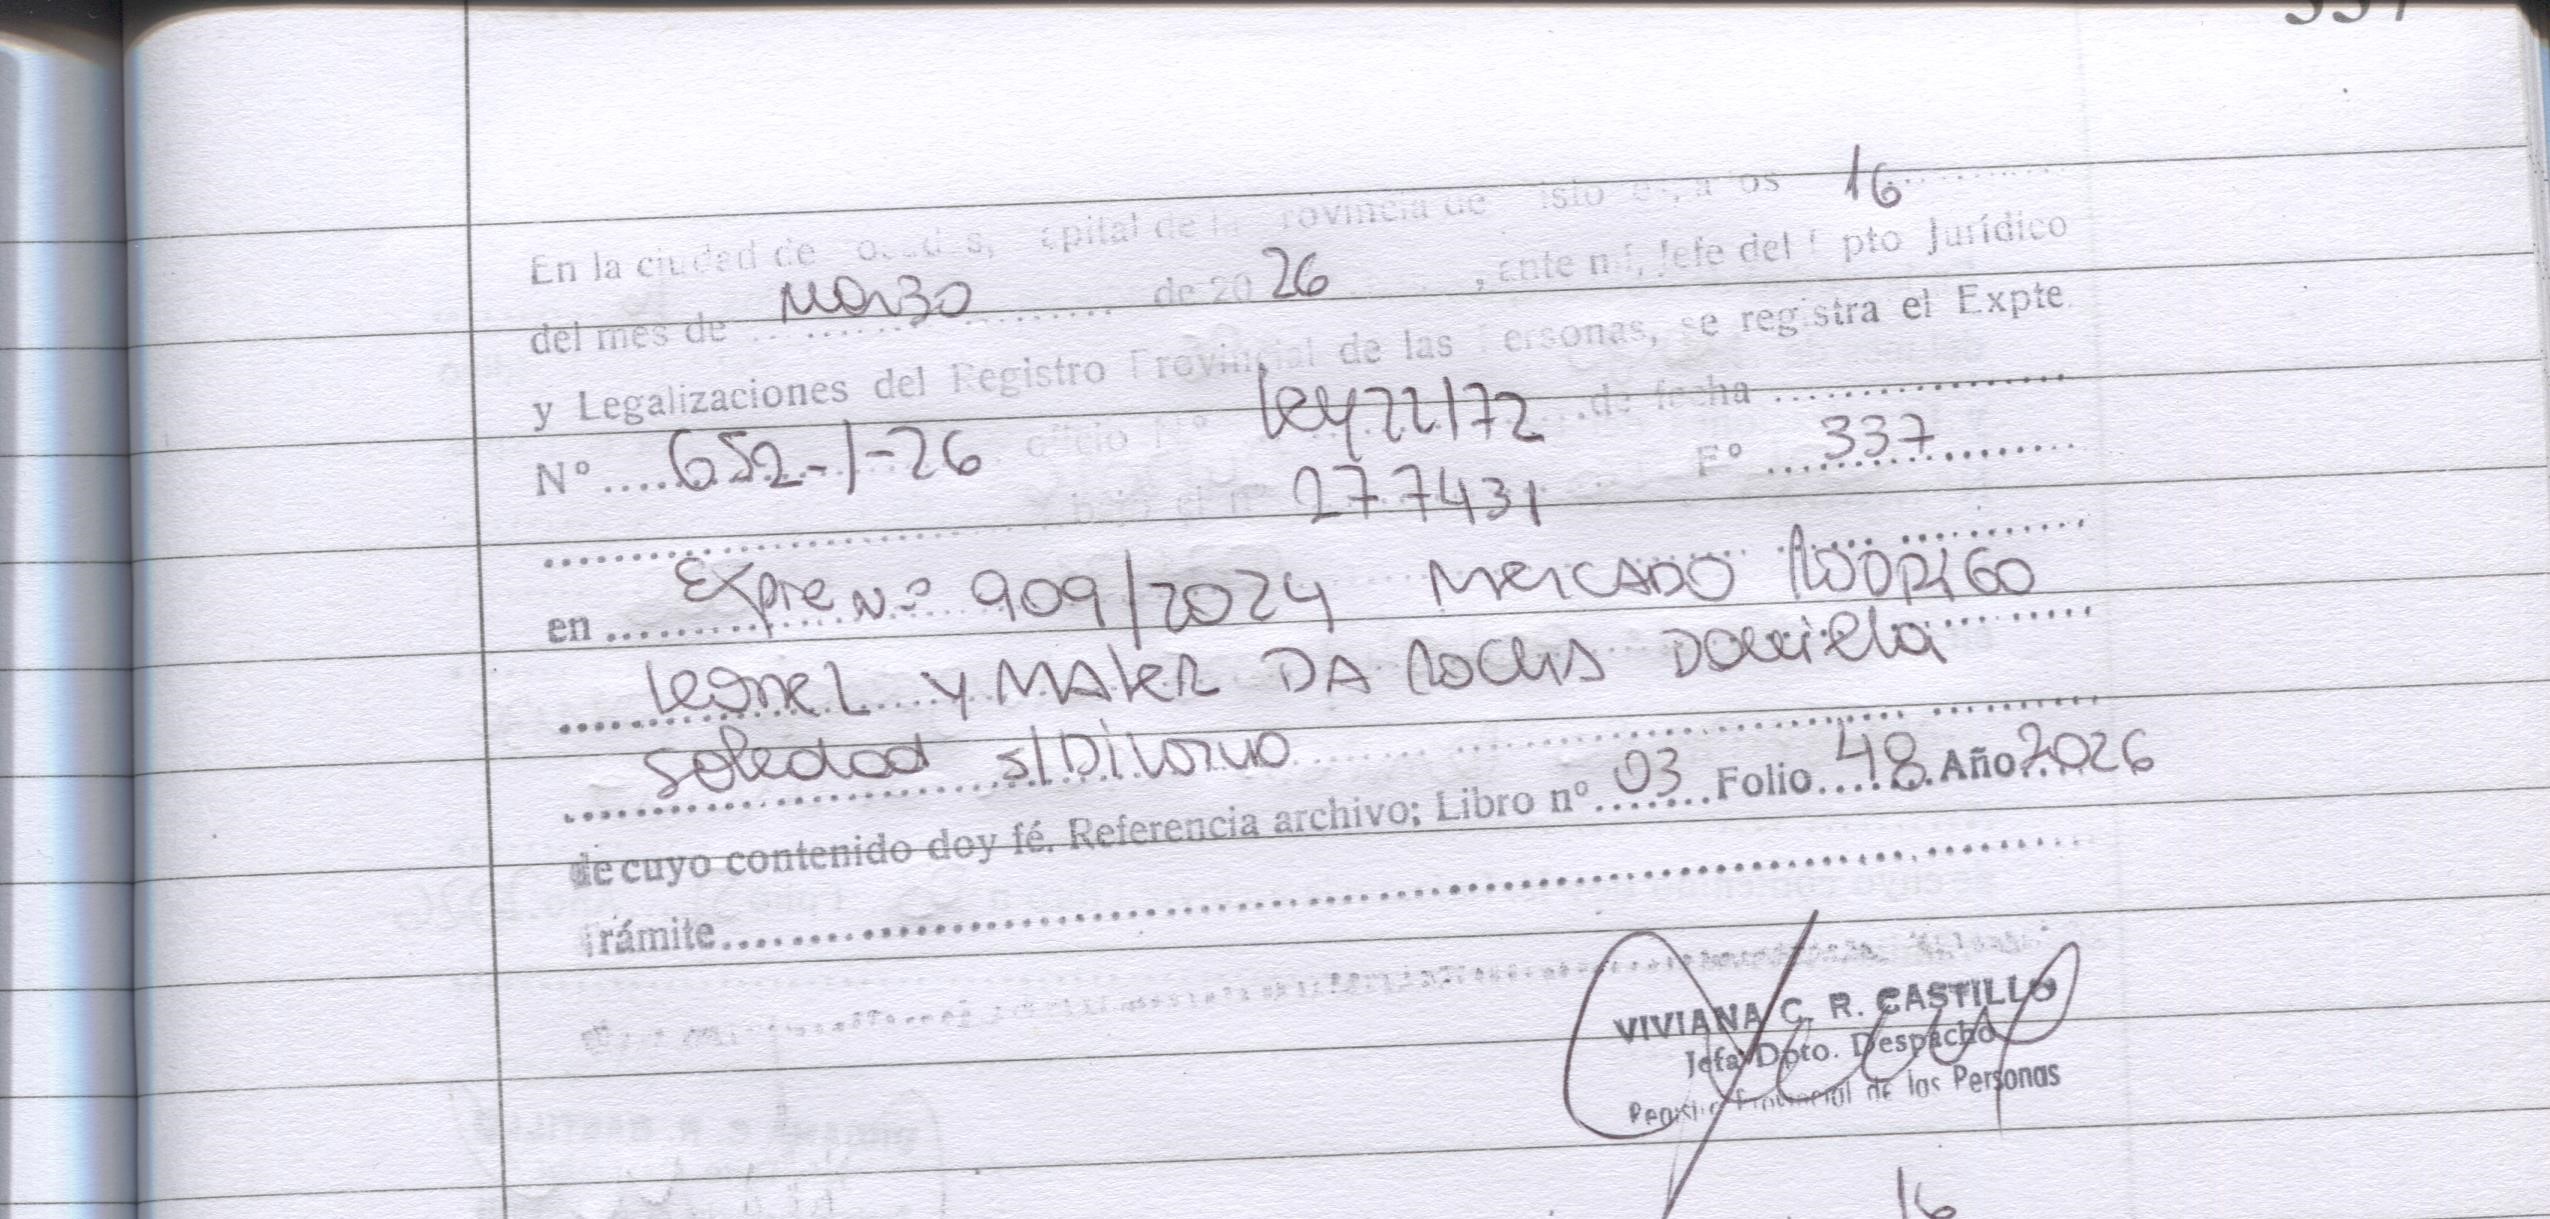 337
En la ciudad de Posadas, capital de la Provincia de Misiones, a los 16
del mes de Marzo de 2026, ante mí, Jefe del Dpto Jurídico
y Legalizaciones del Registro Provincial de las Personas, se registra el Expte
Nº 652-1-26 oficio Nº Ley 22172 de fecha
bajo el nº 277431 Fº 337
en Expte Nº 909/2024 MERCADO RODRIGO
Leonel y MAIER DA ROCHA Daniella
Soledad s/Divorcio
de cuyo contenido doy fé. Referencia archivo; Libro nº 03 Folio 48 Año 2026
Trámite
VIVIANA C. R. CASTILLO
Jefa Dpto. Despacho
Registro Provincial de las Personas
16